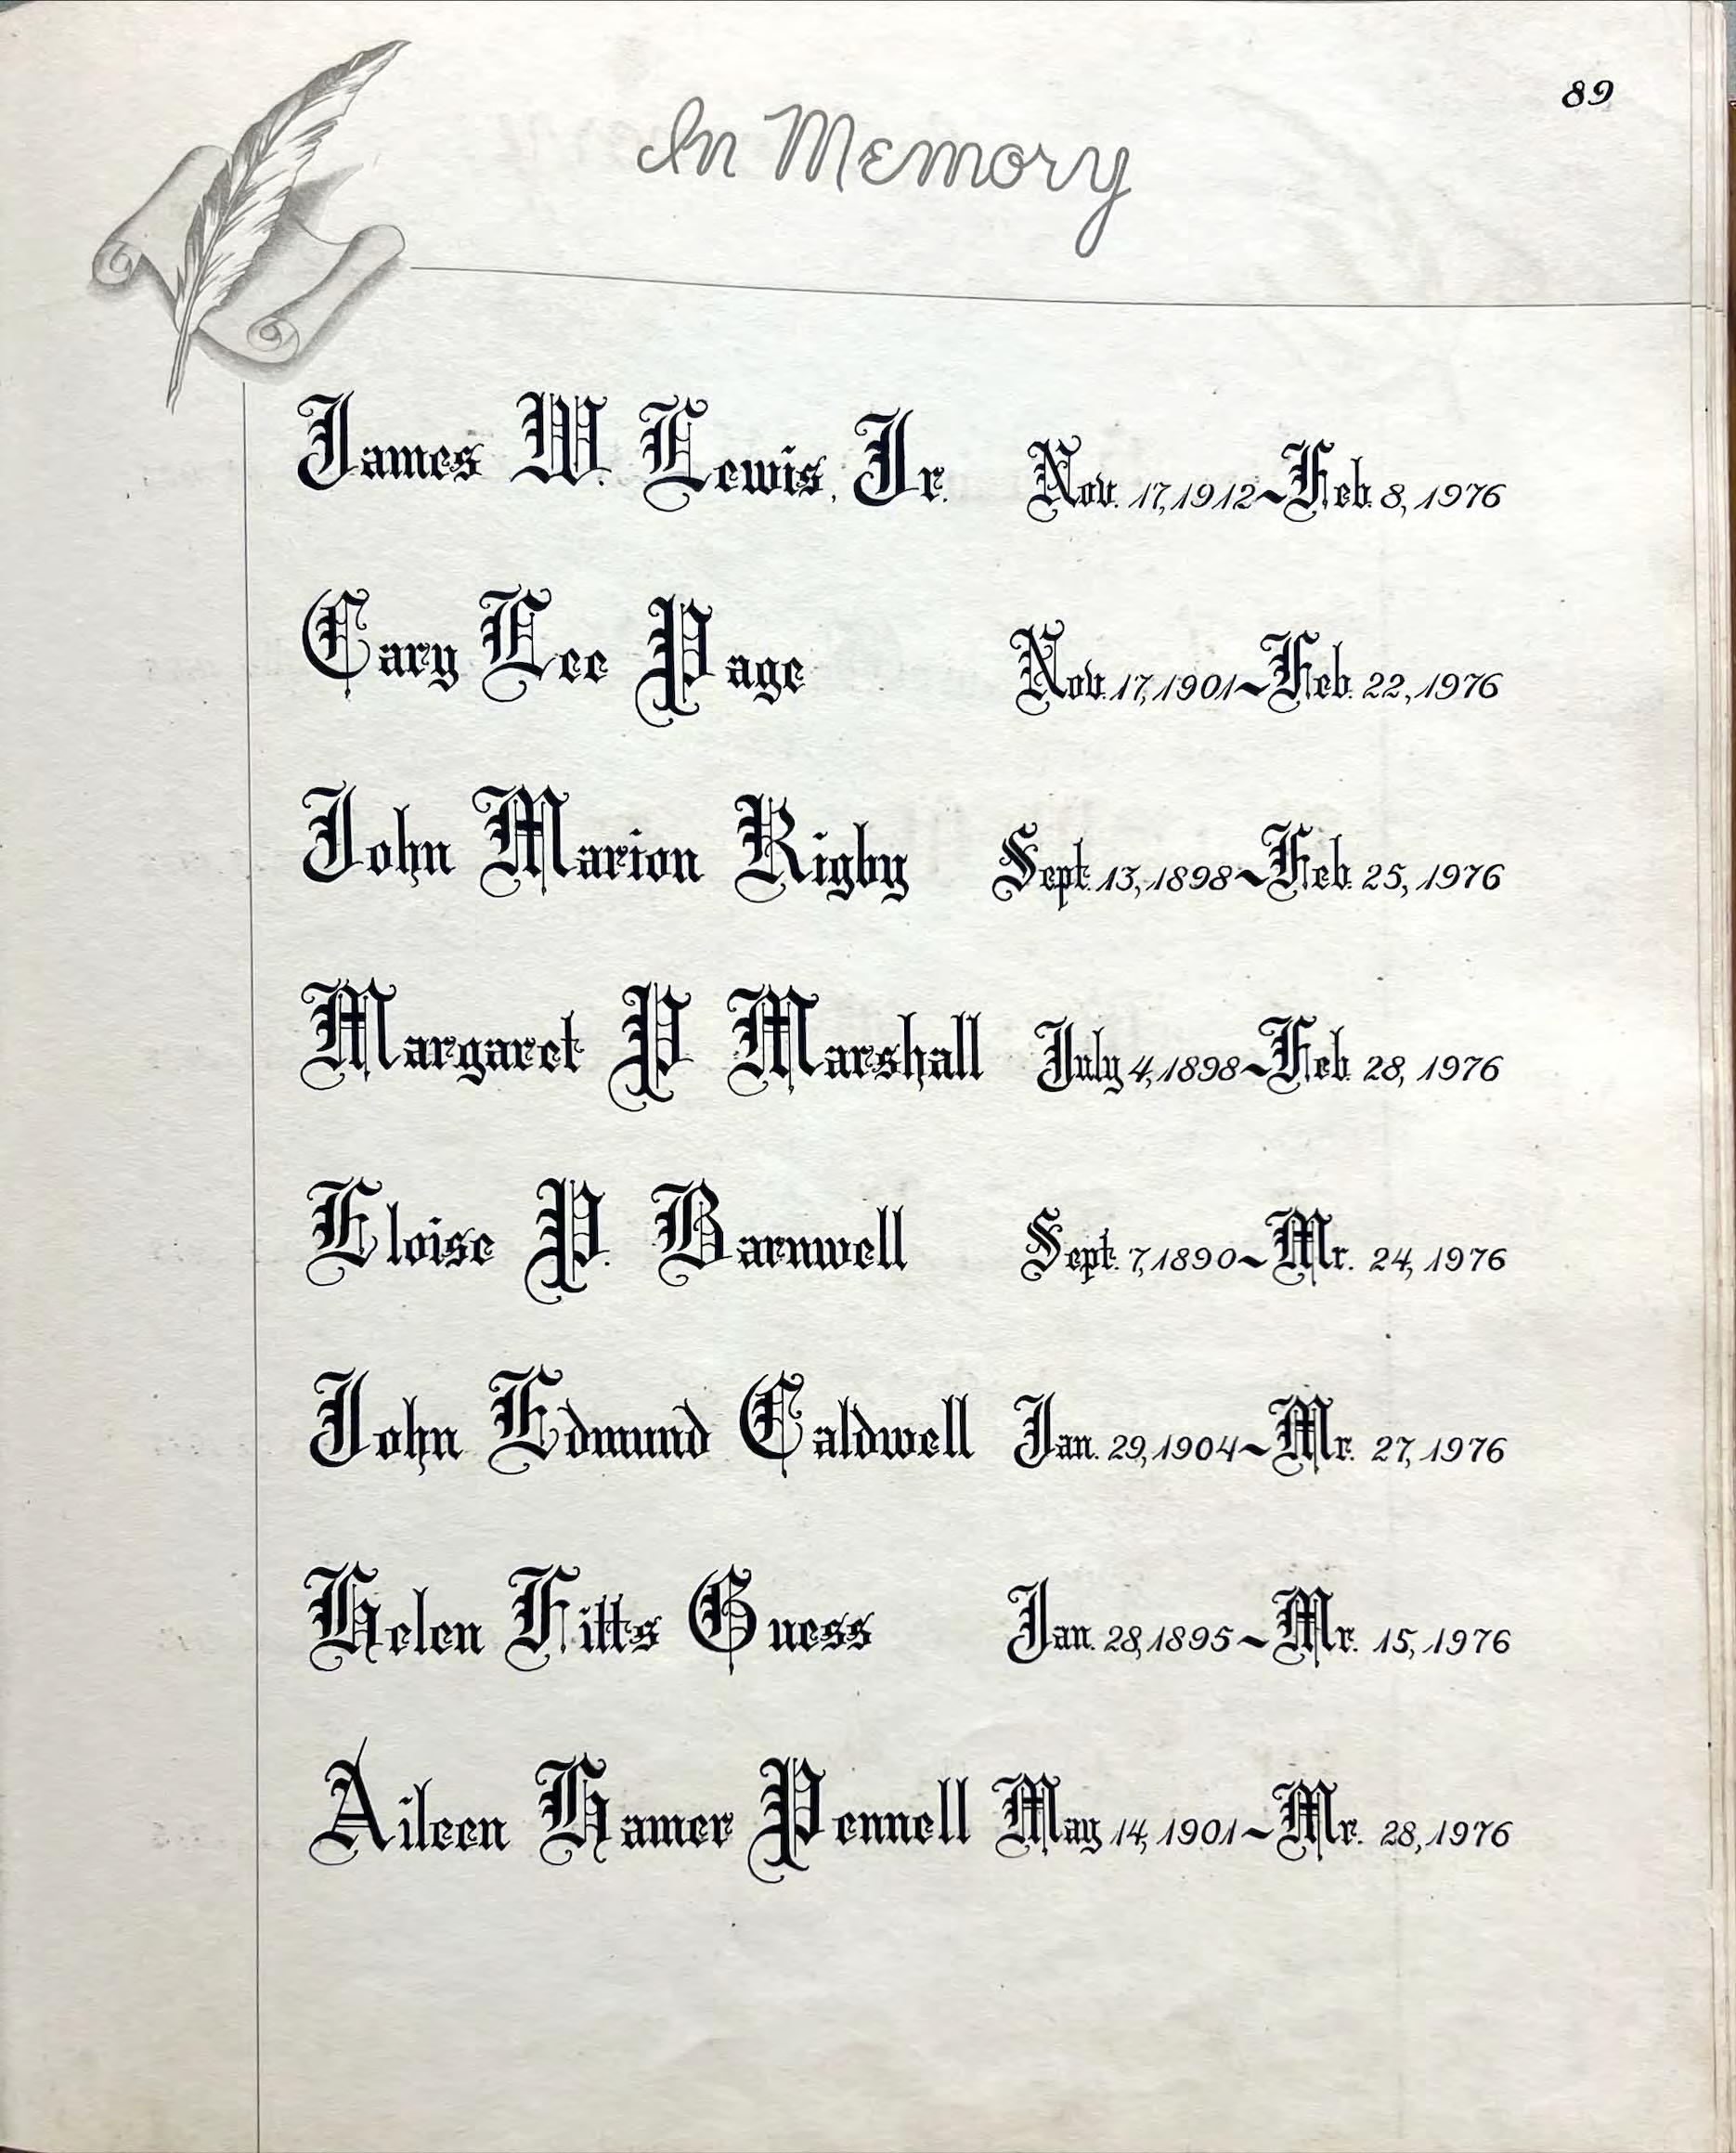 89
In Memory
James W. Lewis, Jr. Nov. 17, 1912~Feb. 8, 1976
Cary Lee Page Nov. 17, 1901~Feb. 22, 1976
John Marion Rigby Sept. 13, 1898~Feb. 25, 1976
Margaret P. Marshall July 4, 1898~Feb. 28, 1976
Eloise P. Barnwell Sept. 7, 1890~Mr. 24, 1976
John Edmund Caldwell Jan. 29, 1904~Mr. 27, 1976
Helen Fitts Guess Jan. 28, 1895~Mr. 15, 1976
Aileen Hamer Pennell May 14, 1901~Mr. 28, 1976